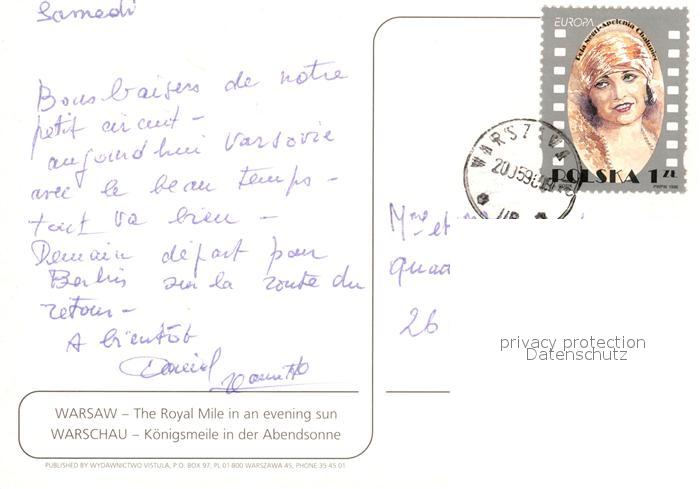 Samedi
Bons baisers de notre
petit circuit -
aujourd'hui Varsovie
avec le beau temps -
tout va bien -
Demain départ pour
Berlin sur la route du
retour -
A bientôt
Daniel
EUROPA
Pola Negri-Apolonia Chałupiec
WARSZAWA
POLSKA 1 ZŁ
PWPW 1996
UP
Mme et
26
privacy protection
Datenschutz
WARSAW – The Royal Mile in an evening sun
WARSCHAU – Königsmeile in der Abendsonne
PUBLISHED BY WYDAWNICTWO VISTULA, P.O. BOX 97, PL 01-800 WARSZAWA 45, PHONE 35 45 01